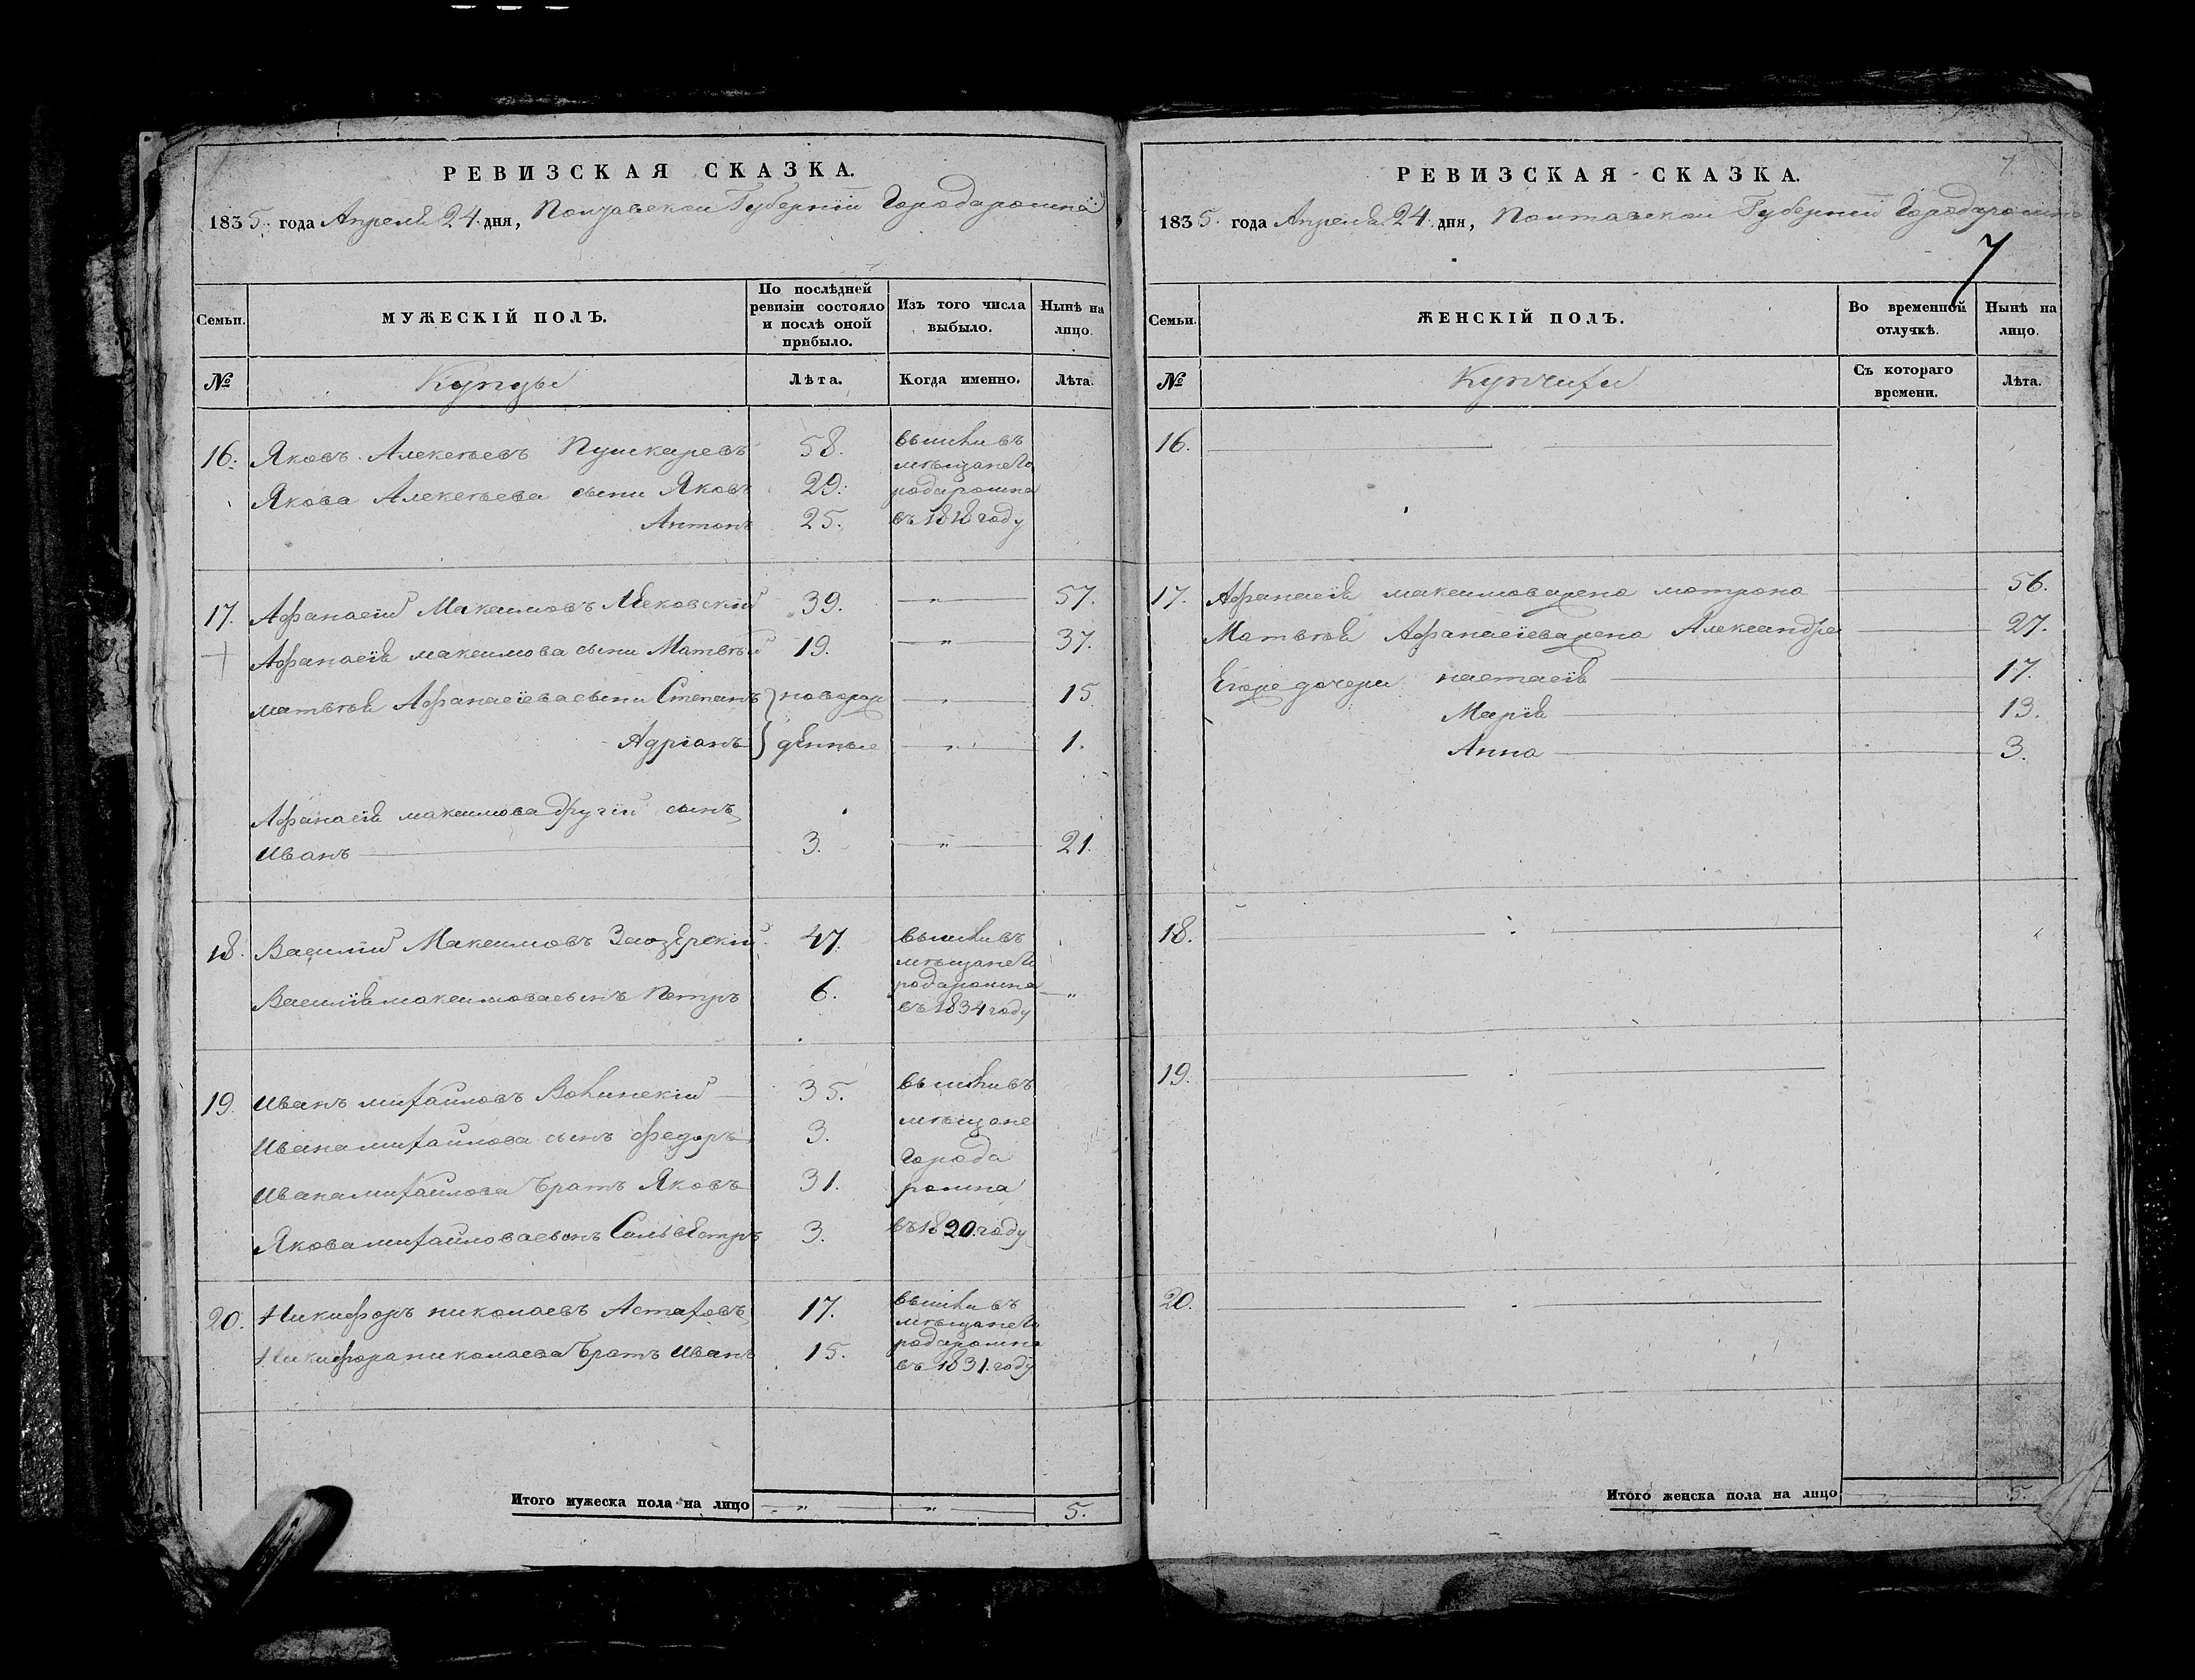 РЕВИЗСКАЯ СКАЗКА.
1835. года Апреля 24. дня, Полтавской Губернии Города ромна
Семьи.
МУЖЕСКІЙ ПОЛЪ.
По послѣдней ревизіи состояло и послѣ оной прибыло.
Изъ того числа выбыло.
Нынѣ на лицо.
№
Купцы
Лѣта.
Когда именно.
Лѣта.
16. Яковъ Алексѣевъ Пушкаревъ 58. вышли въ
мѣщане го
Якова Алексѣева сыни Яковъ 29. рода ромна
Антонъ 25. въ 1818 году
17. Афанасій Максимовъ 39. „ 57.
Афанасія максимова сыни Матвѣй 19. „ 37.
матвѣя Афанасіева сыни Степанъ } новорож „ 15
Адріанъ } дѣнные „ 1.
Афанасія максимова другій сынъ
Иванъ 3. „ 21.
18. Василій Максимовъ Заозерскій 47. вышли въ
мѣщане го
Василія максимова сынъ Петръ 6. рода ромна „
въ 1834 году
19. Иванъ михайловъ 35. вышли въ
Ивана михайлова сынъ Федоръ 3. мѣщане
города
Ивана михайлова братъ Яковъ 31. ромна
Якова михайлова сынъ Сильвестръ 3. въ 1820. году
20. Никифоръ николаевъ Астаховъ 17. вышли въ
мѣщане го
Никифора николаева братъ Иванъ 15. рода ромна
въ 1831. году
Итого мужеска пола на лицо „ „ 5.
РЕВИЗСКАЯ СКАЗКА.
7
1835. года Апреля 24. дня, Полтавской Губерніи Города ромна
7
Семьи.
ЖЕНСКІЙ ПОЛЪ.
Во временной отлучкѣ.
Нынѣ на лицо.
№
Купчихи
Съ котораго времени.
Лѣта.
16.
17. Афанасія максимова жена матрона 56.
Матвѣя Афанасіева жена Александра 27.
Егоже дочери настасія 17.
Марія 13.
Анна 3.
18.
19.
20.
Итого женска пола на лицо 5.